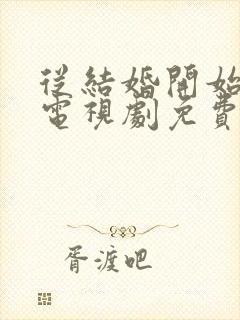 從結婚開始
電視劇免費
胥渡吧